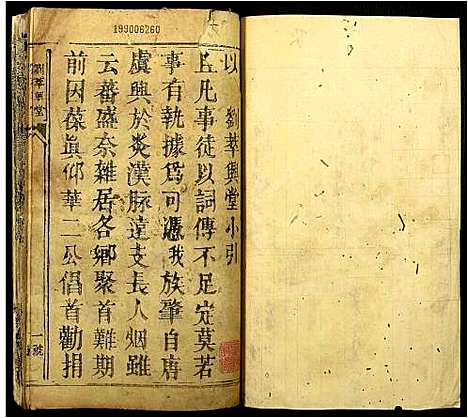 199006260
以 劉萃興堂小引
且凡事徒以詞傳不足定莫若
事有執據爲可憑我族肇自唐
虞興於炎漢脉遠支長人烟雖
云蕃盛奈雜居各鄉聚首難期
前因葆眞仰華二公倡首勸捐
劉萃興堂
一號